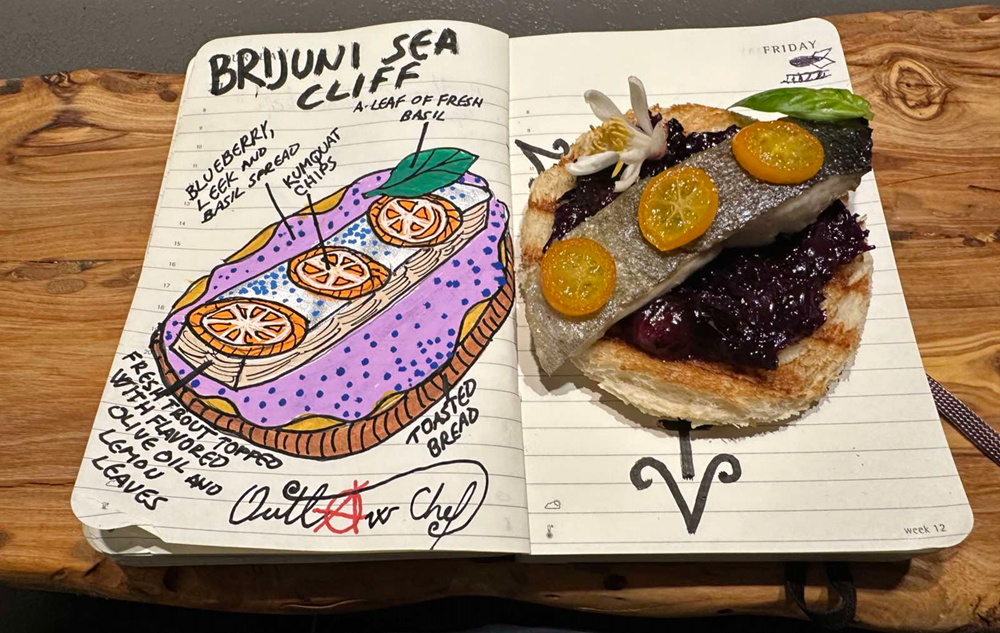 BRIJUNI SEA
CLIFF
A LEAF OF FRESH
BASIL
BLUEBERRY,
LEEK AND
BASIL SPREAD
KUMQUAT
CHIPS
FRESH TROUT TOPPED
WITH FLAVORED
OLIVE OIL AND
LEMON
LEAVES
TOASTED
BREAD
OutlAw Chef
FRIDAY
week 12